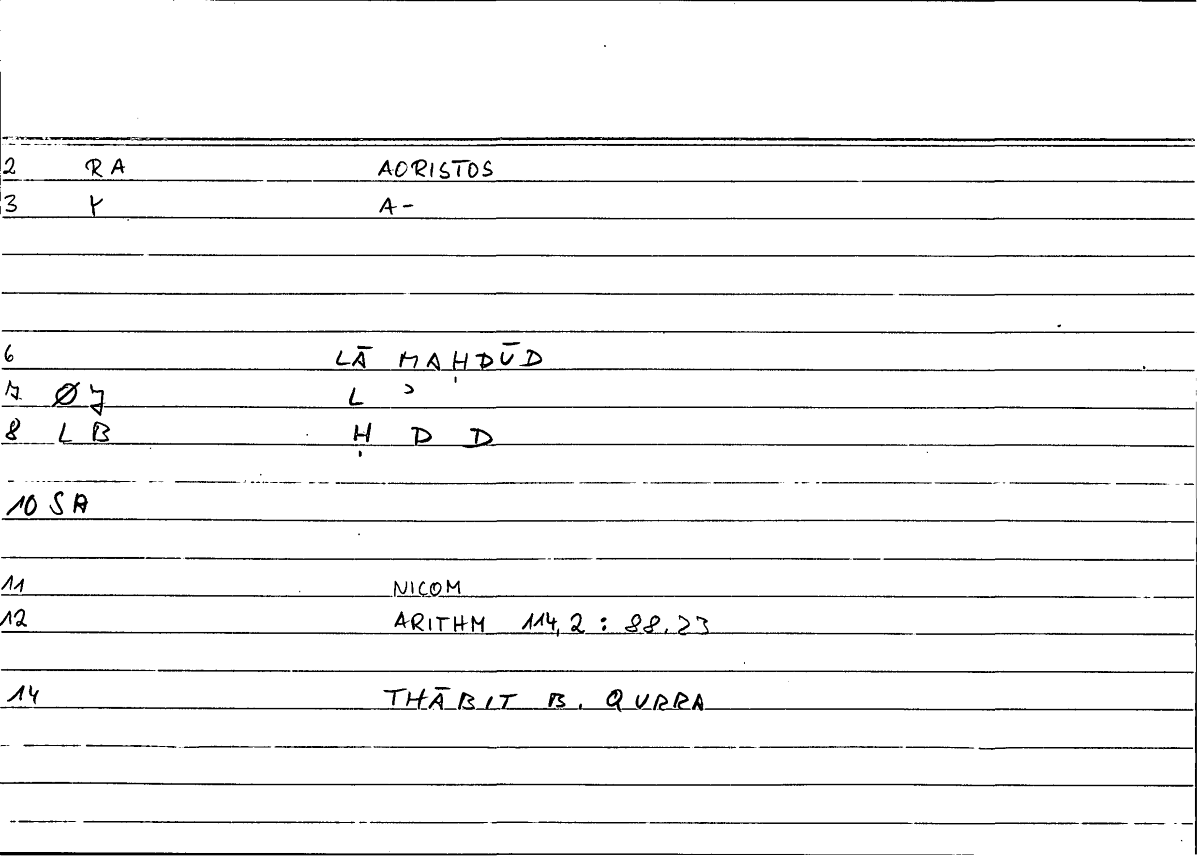 2 RA AORISTOS
3 Y A-
6 LĀ MAḤDŪD
7 ØJ L ʾ
8 LB Ḥ D D
10 SA
11 NICOM
12 ARITHM 114,2 : 88.23
14 THĀBIT B. QURRA